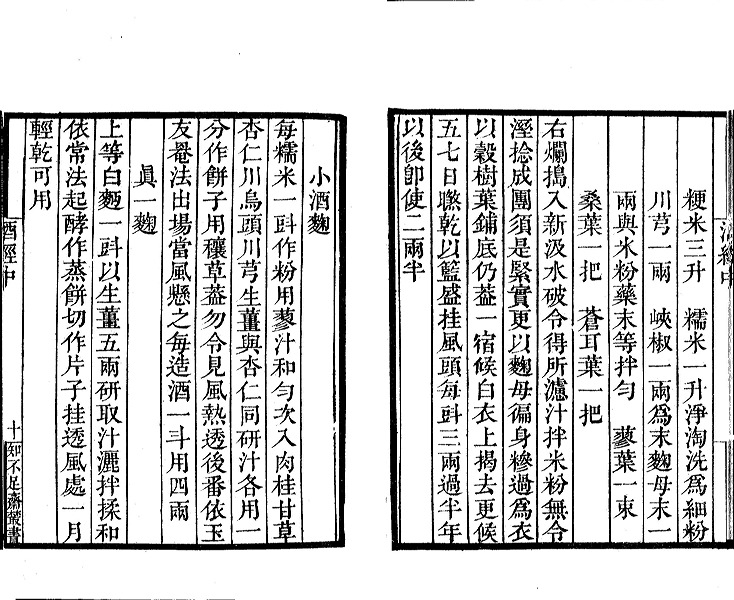 粳米三升　糯米一升淨淘洗爲細粉
川芎一兩　峽椒一兩爲末麴母末一
兩與米粉藥末等拌勻　蓼葉一束
桑葉一把　蒼耳葉一把
右爛搗入新汲水破令得所濾汁拌米粉無令
溼捻成團須是緊實更以麴母徧身糝過爲衣
以穀樹葉鋪底仍葢一宿候白衣上揭去更候
五七日㬠乾以籃盛挂風頭每㪷三兩過半年
以後卽使二兩半
小酒麴
每糯米一㪷作粉用蓼汁和勻次入肉桂甘草
杏仁川烏頭川芎生薑與杏仁同研汁各用一
分作餅子用穰草葢勿令見風熱透後番依玉
友罨法出場當風懸之每造酒一斗用四兩
眞一麴
上等白麪一㪷以生薑五兩研取汁灑拌揉和
依常法起酵作蒸餅切作片子挂透風處一月
輕乾可用
酒經中
十
知不足齋叢書